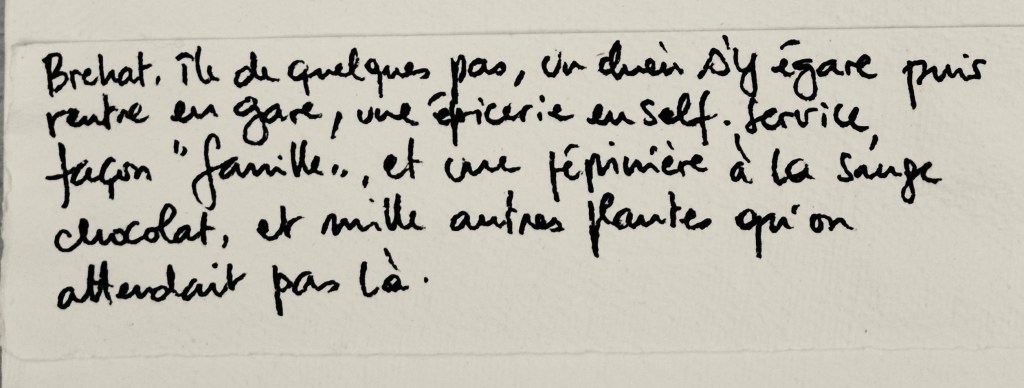 Brehat. île de quelques pas, un chien s'y égare puis
rentre en gare, une épicerie en self. service,
façon "famille", et une pépinière à la sauge
chocolat, et mille autres plantes qu'on
attendait pas là.